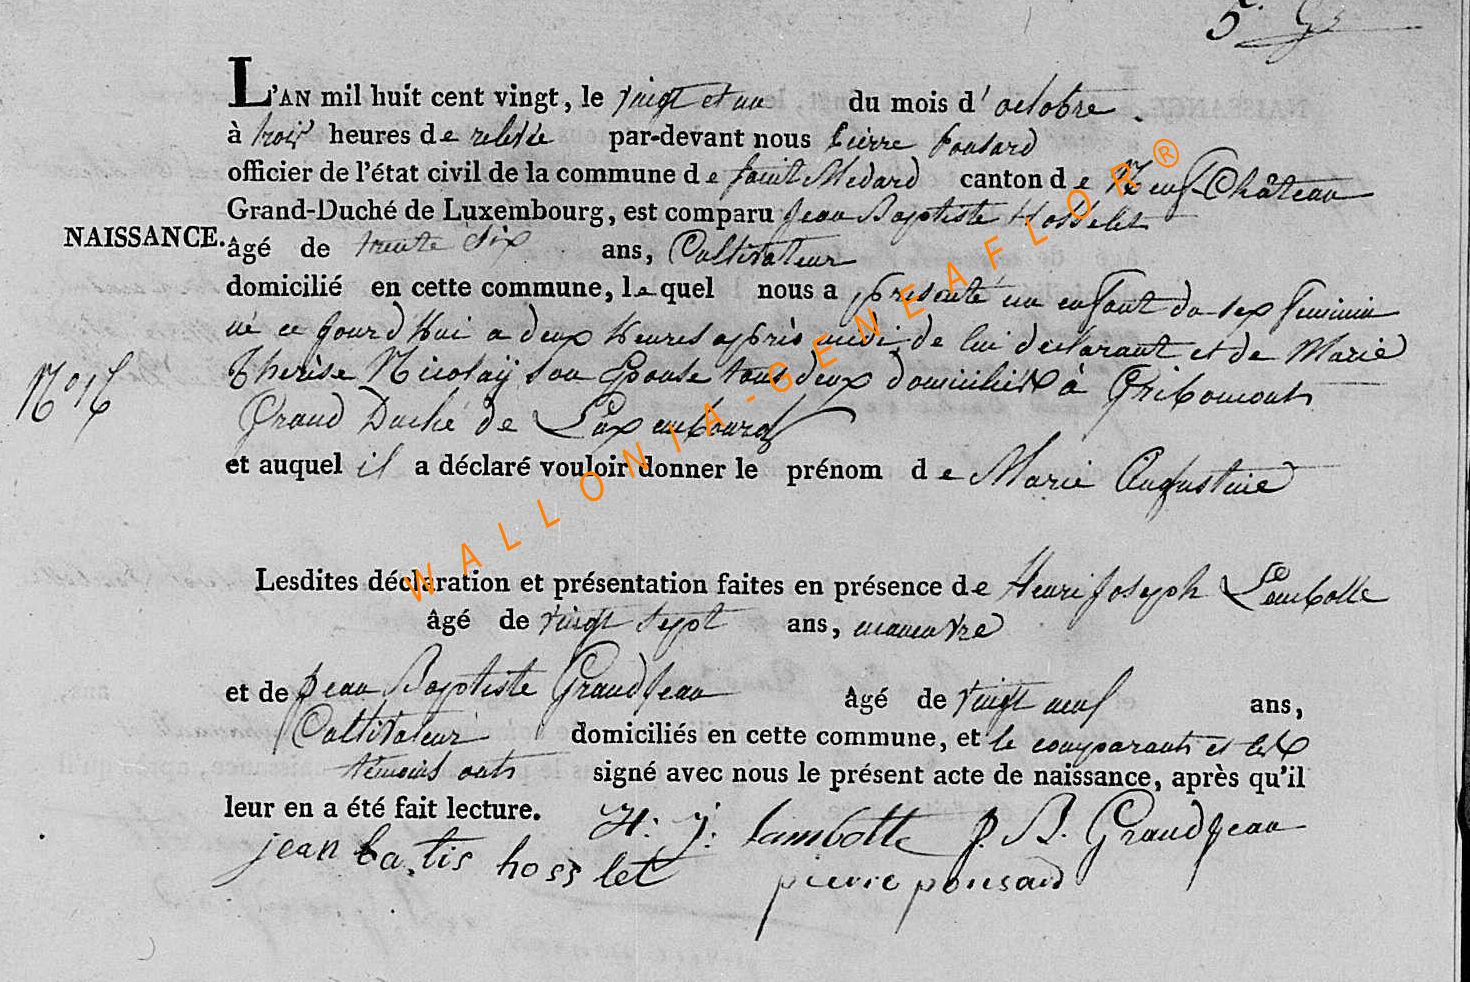 5.
L'AN mil huit cent vingt, le vingt et un du mois d' octobre
à trois heures de relevée par-devant nous Pierre Ponsard
officier de l'état civil de la commune de Saint Medard canton de Neuf-Château
Grand-Duché de Luxembourg, est comparu Jean Baptiste Hosselet
NAISSANCE. âgé de trente six ans, Cultivateur
domicilié en cette commune, lequel nous a présenté un enfant du sex feminin
né ce jourd'hui a deux heures après midi de lui déclarant et de Marie
Therèse Nicolaÿ son Epouse tous deux domiciliés à Gribomont
Grand Duché de Luxembourg
et auquel il a déclaré vouloir donner le prénom de Marie Augustine
Lesdites déclaration et présentation faites en présence de Henri Joseph Lambotte
âgé de vingt sept ans, manuvre
et de Jean Baptiste Grandjean âgé de vingt neuf ans,
Cultivateur domiciliés en cette commune, et le comparant et les
témoins ont signé avec nous le présent acte de naissance, après qu'il
leur en a été fait lecture.
H: j: lambotte J. B. Grandjean
jean batis hosslet
pierre ponsard
WALLONIA-GENEAFLOR®